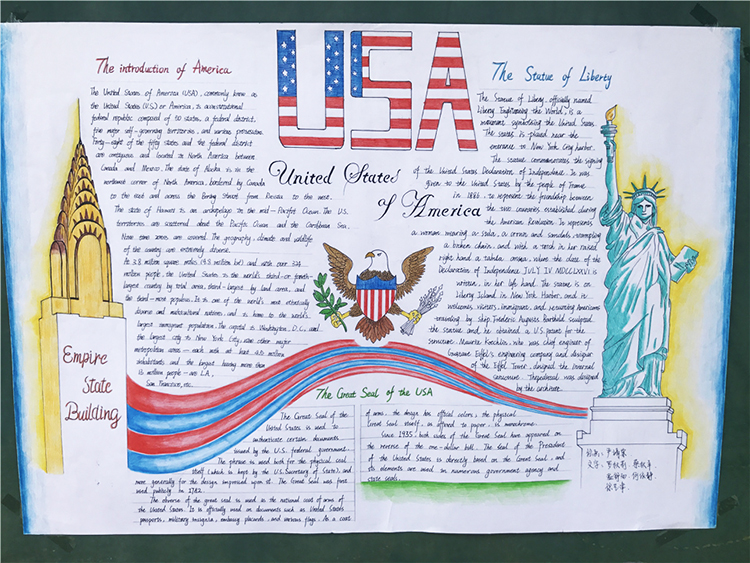 USA
The introduction of America
The United States of America (USA), commonly know as
the United States (U.S.) or America, is a constitutional
federal republic composed of 50 states, a federal district,
five major self-governing territories, and various possession.
Forty-eight of the fifty states and the federal district
are contiguous and located in North America between
Canada and Mexico. The state of Alaska is in the
northwest corner of North America, bordered by Canada
to the east and across the Bering Strait from Russia to the west.
The state of Hawaii is an archipelago in the mid-Pacific Ocean. The U.S.
territories are scattered about the Pacific Ocean and the Caribbean Sea.
Nine time zones are covered. The geography, climate and wildlife
of the country are extremely diverse.
At 3.8 million square miles and with over 324
million people, the United States is the world's third-or fourth-
largest country by total area, third-largest by land area, and
the third-most populous. It is one of the world's most ethnically
diverse and multicultural nations, and is home to the world's
largest immigrant population. The capital is Washington, D.C., and
the largest city is New York City; nine other major
metropolitan areas — each with at least 4.5 million
inhabitants and the largest having more than
13 million people — are L.A.,
San Francisco, etc.
United States
of America
The Statue of Liberty
The Statue of Liberty, officially named
Liberty Enlightening the World, is a
monument symbolising the United States.
The statue is placed near the
entrance to New York City harbor.
The statue commemorates the signing
of the United States Declaration of Independence. It was
given to the United States by the people of France
in 1886, to represent the friendship between
the two countries established during
the American Revolution. It represents
a woman wearing a stola, a crown and sandals, trampling
a broken chain, and with a torch in her raised
right hand a tabula ansata, where the date of the
Declaration of Independence JULY IV MDCCLXXVI is
written, in her left hand. The statue is on
Liberty Island in New York Harbor, and it
welcomes visitors, immigrants, and returning Americans
traveling by ship. Frédéric Auguste Bartholdi sculpted
the statue and he obtained a U.S. patent for the
structure. Maurice Koechlin, who was chief engineer of
Gustave Eiffel's engineering company and designer
of the Eiffel Tower, designed the internal
structure. The pedestal was designed
by the architect.
Empire
State
Building
The Great Seal of the USA
The Great Seal of the
United States is used to
authenticate certain documents
issued by the U.S. federal government.
The phrase is used both for the physical seal
itself (which is kept by the U.S. Secretary of State), and
more generally for the design impressed upon it. The Great Seal was first
used publicly in 1782.
The obverse of the great seal is used as the national coat of arms of
the United States. It is officially used on documents such as United States
passports, military insignia, embassy placards, and various flags. As a coat
of arms, the design has official colors; the physical
Great Seal itself, as affixed to paper, is monochrome.
Since 1935, both sides of the Great Seal have appeared on
the reverse of the one-dollar bill. The Seal of the President
of the United States is directly based on the Great Seal, and
its elements are used in numerous government agency and
state seals.